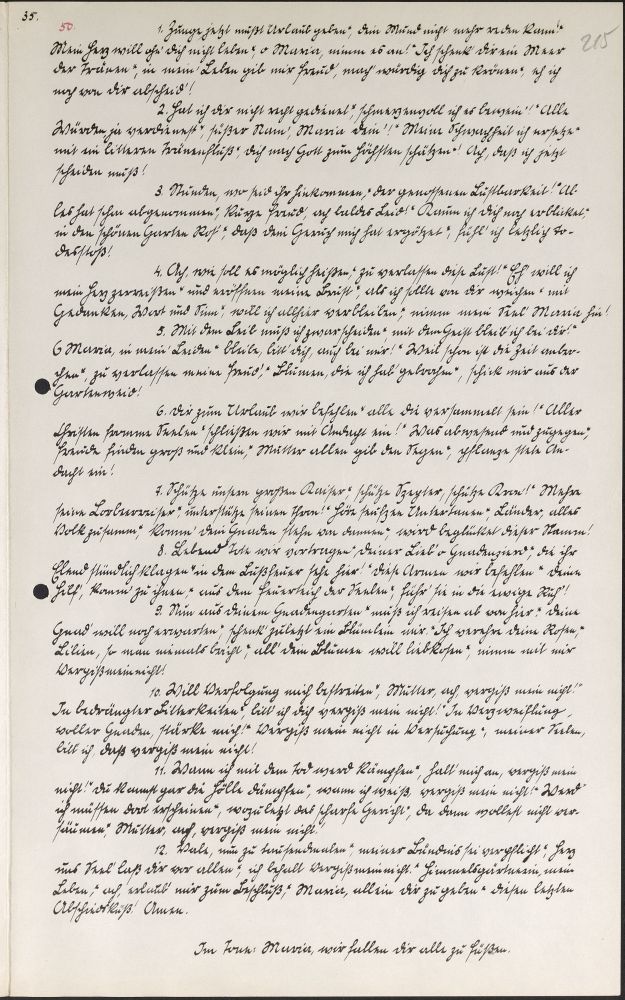 35.
50.
215
1. Zunge jetzt mußt Urlaub geben", dein Mund nicht mehr reden kann!"
Mein Herz will ohn' dich nicht leben", o Maria, nimm es an!" Ich schenk' dir ein Meer
der Tränen", in mein' Leben gib mir Freud', mach' würdig dich zu krönen", eh ich
noch von dir abscheid'!
2. Hat ich dir nicht recht gedienet", schmerzenvoll ich es bewein'!" Alle
Würden ja verdienest", süßer Nam', Maria dein'!" Meine Schwachheit ich ersetze"
mit ein bitteren Tränenfluß", dich nach Gott zum Höchsten schätzen"! Ach, daß ich jetzt
scheiden muß!
3. Stunden, wo seid ihr hinkommen," der genossenen Lustbarkeit!" Al-
les hat schon abgenommen", kurze Freud', ach baldes Leid!" Kaum ich dich noch erblicket,"
in den schönen Garten Ros'", daß dein Geruch mich hat ergötzet", fühl' ich letzlich To-
desstoß!
4. Ach, wie soll es möglich heißen," zu verlassen diese Lust!" Eh' will ich
mein Herz zerreißen" und eröffnen meine Brust", als ich sollte von dir weichen" mit
Gedanken, Wort und Sinn', will ich allhier verbleiben," nimm mein Seel' Maria hin!
5. Mit dem Leib muß ich zwar scheiden" mit dem Geist bleib' ich bei dir!"
O Maria, in mein' Leiden" bleibe, bitt' dich, auch bei mir!" Weil schon ist die Zeit anbro-
chen", zu verlassen meine Freud'," Blumen, die ich hab gebrochen", schick mir aus der
Gartenweid'!
6. Dir zum Urlaub wir befehlen" alle die versammelt sein!" Aller
Christen fromme Seelen" schließen wir mit Andacht ein!" Was abwesend und zugegen,"
Freunde Feinden groß und klein," Mutter allen gib den Segen", pflanze stete An-
dacht ein!
7. Schütze unsern großen Kaiser" schütze Szepter, schütze Kron'!" Mehre
seine Lorbeerreiser", unterstütze seinen Thron!" Höre seufzen Untertanen," Länder, alles
Volk zusamm'," komm' dein Gnaden stehe von dannen", wird beglücket dieser Stamm!
8. Lebend Tote wir vortragen", deiner Lieb' o Gnadenzierd'," die ihr
Elend stündlich klagen" in dem Bußfeuer sehr hier!" Diese Armen wir befehlen" deine
Hilf', komm' zu ihnen," aus dem Feuerteich der Seelen," führ' sie in die ewige Ruh'!
9. Nun aus deinem Gnadengarten" muß ich reisen ab von hier," deine
Gnad' will noch erwarten", schenk' zuletzt ein Blümlein mir." Ich verehre deine Rosen,"
Lilien, so man niemals bricht," all' dein Blumen will liebkosen", nimm mit mir
Vergißmeinnicht!
10. Will Verfolgung mich bestreiten", Mutter, ach, vergiß mein nicht!"
In bedrängter Bitterkeiten", bitt' ich dich vergiß mein nicht!" In Verzweiflung,
voller Gnaden, stärke mich!" Vergiß mein nicht in Versuchung", meiner Seelen,
bitt ich, daß vergiß mein nicht!
11. Wann ich mit dem Tod werd kämpfen", halt' mich an, vergiß mein
nicht!" Du kannst gar die Hölle dämpfen", wann ich weiß, vergiß mein nicht!" Werd'
ich müssen dort erscheinen", wozuletzt das scharfe Gericht", da dann wollest nicht ver-
säumen," Mutter, ach, vergiß mein nicht!
12. Vale, nun zu tausendmalen", meiner Bündnis sei verpflicht'," Herz
und Seel' laß dir vor allen", ich behalt Vergißmeinnicht." Himmelsgärtnerin, mein
Leben," ach, erlaub' mir zum Beschluß," Maria, allein dir zu geben" diesen letzten
Abschiedskuß! Amen.
Im Tone: Maria, wir fallen dir alle zu Füßen.